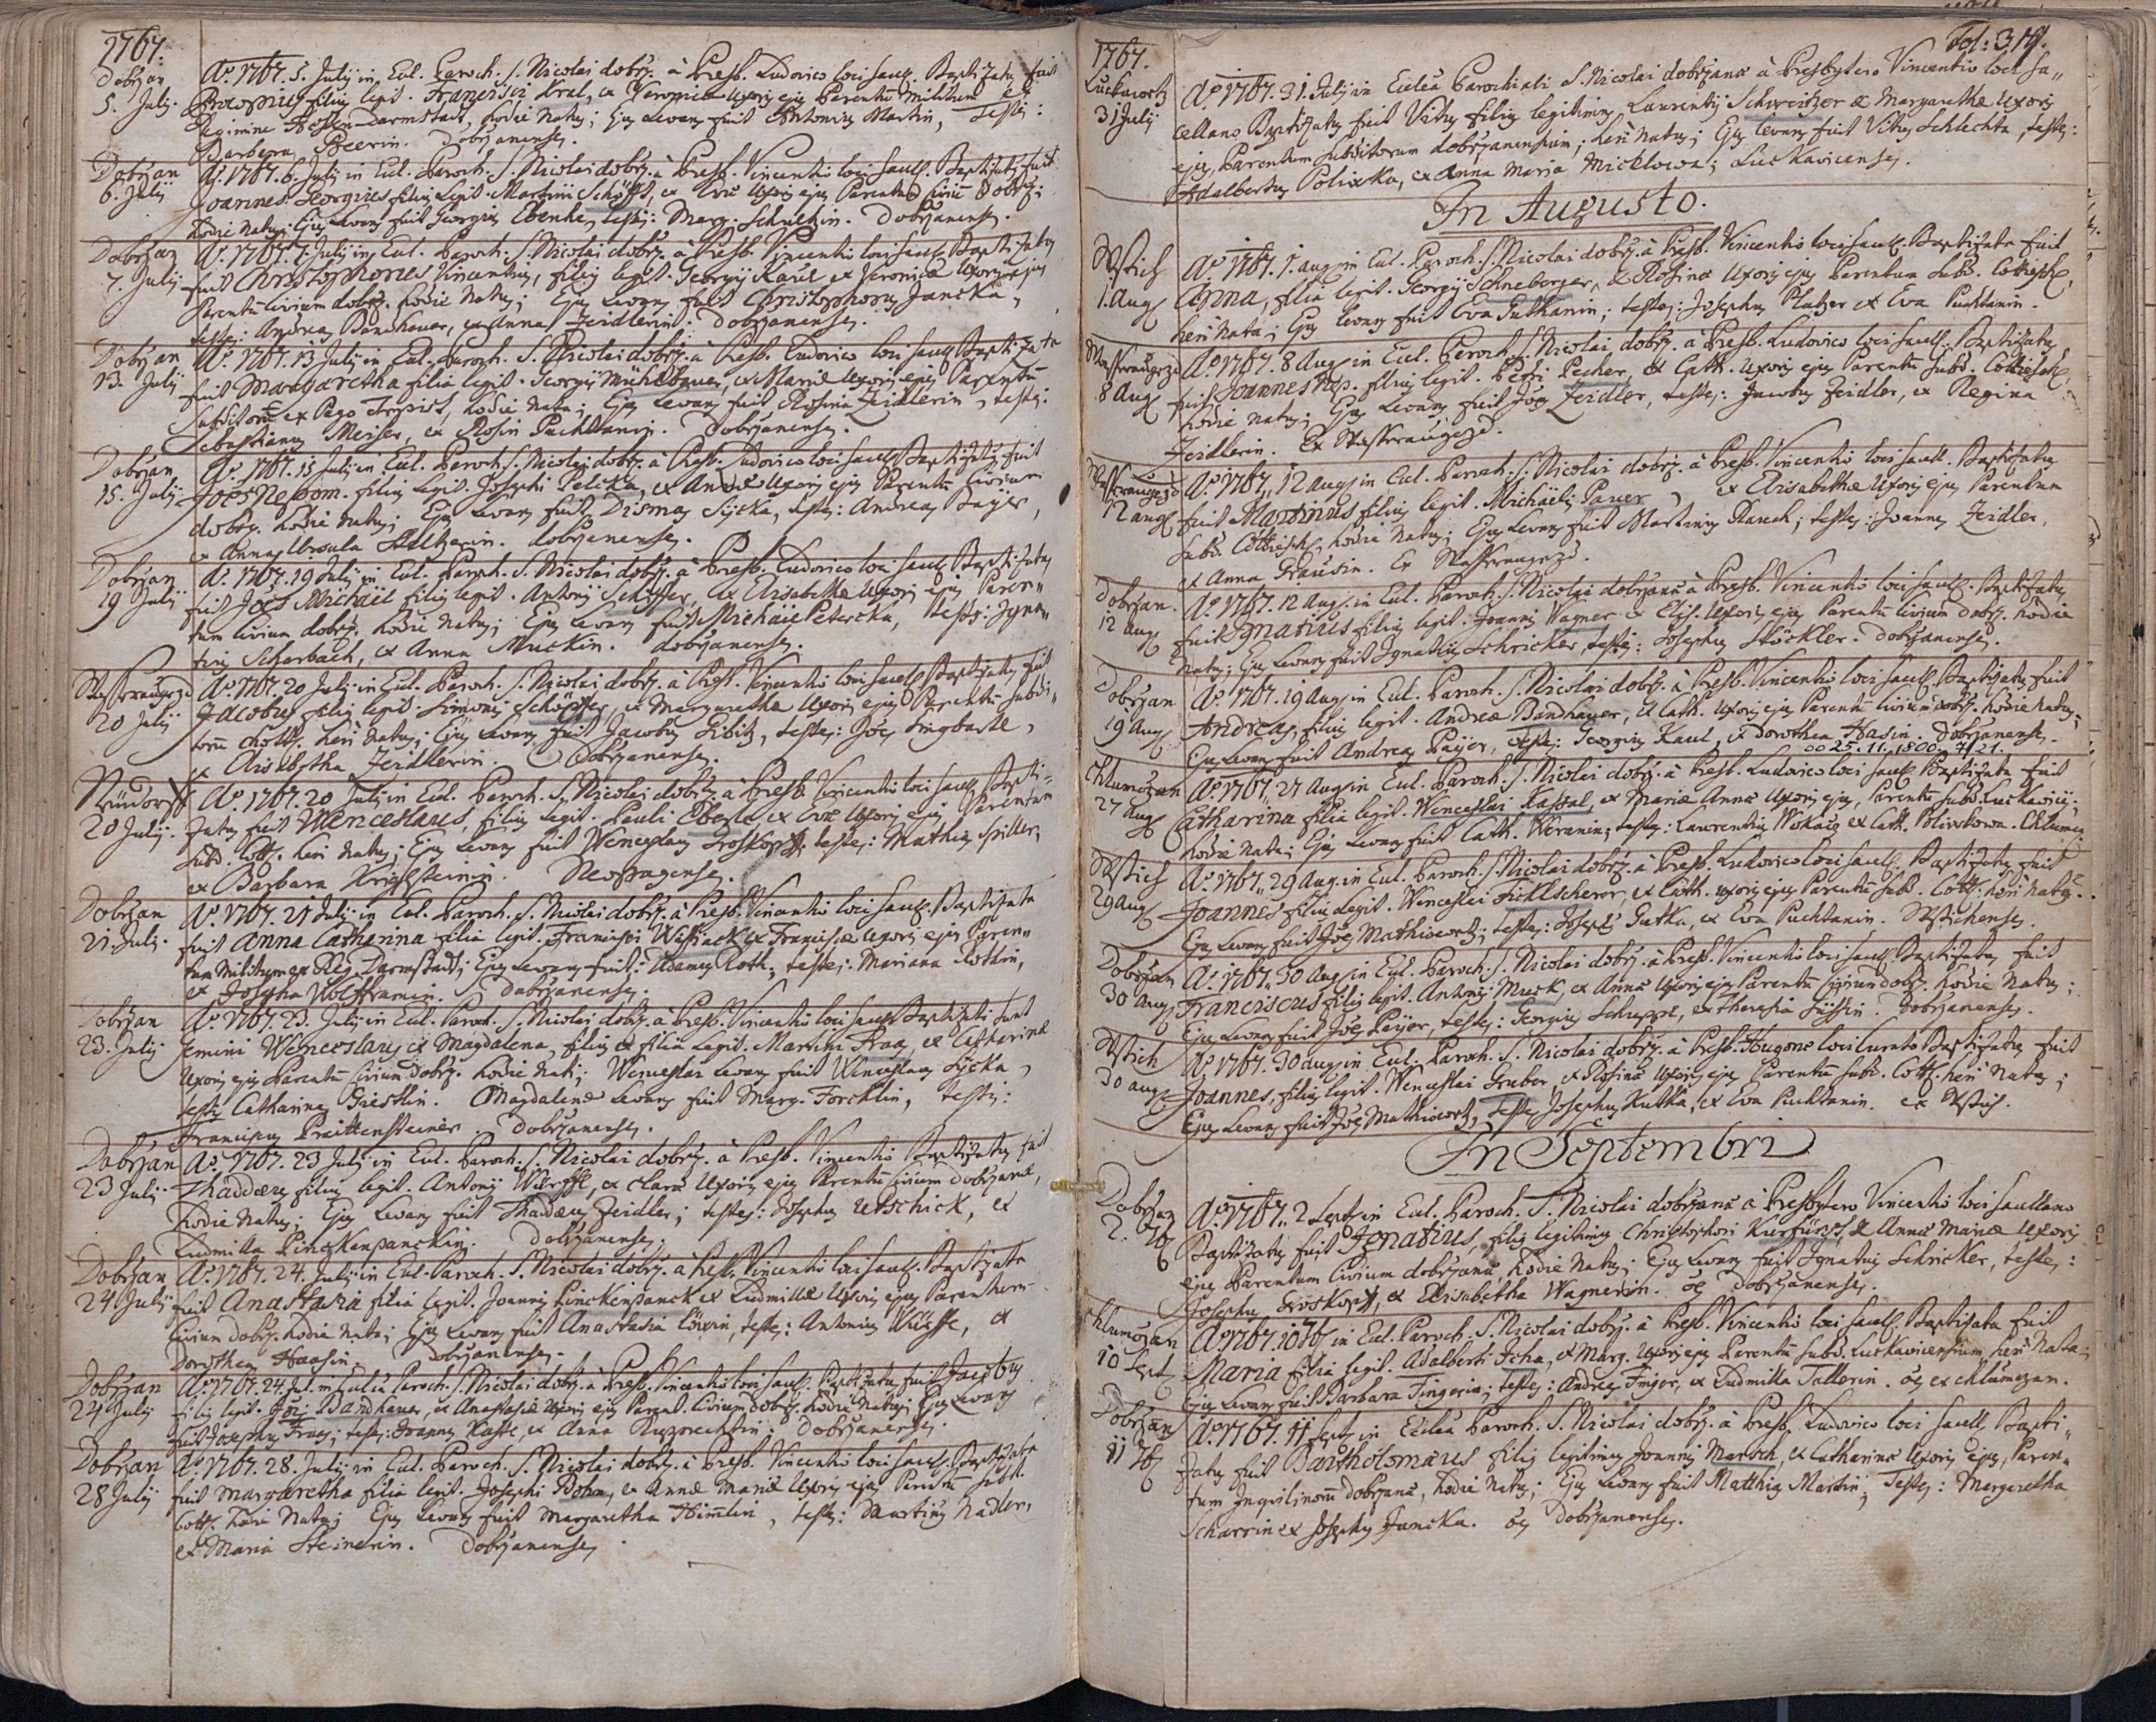 1767.
Dobřan
5. Julij.
Aº. 1767. 5. Julij in Eccl. Paroch. S. Nicolai dobrz. à Presb. Ludovico loci Sacell. Baptizatus fuit
Procopius filius legit. Francisci Kral, ex Veronica Uxoris ejus Parentum militum ex
Regimine Hessen Darmstadt, hodie natus; Ejus Levans fuit Antonius Martin, Testis:
Barbara Beerin. Dobrzanenses.
Dobřan
6. Julij
Aº. 1767. 6. Julij in Eccl. Paroch. S. Nicolai dobrz. à Presb. Vincentio loci Sacell. Baptizatus fuit
Joannes Georgius filius Legit. Martini Schöffl, ex Evæ Uxoris ejus Parentum Civium Dobrz:
hodie natus; Ejus Levans fuit Georgius testes: Marg. Schultzin. Dobrzanenses.
Dobřan
7. Julij
Aº. 1767. 7. Julij in Eccl. Paroch. S. Nicolai dobrz. à Presb. Vincentio loci Sacell. Baptizatus
fuit Christophorus Vincentius, filius legit. Georgij Kaul et Veronicæ Uxoris ejus
Parentum Civium dobrz. hodie natus; Ejus Levans fuit Christophorus Jancka,
testes: Andreas Bandhauer, et Anna Zeidlerin. Dobrzanenses.
Dobřan
13. Julij
Aº. 1767. 13 Julij in Eccl. Paroch. S. Nicolai dobrz. à Presb. Ludovico loci Sacell. Baptizata
fuit Margaretha filia legit. Georgij Mühlbauer, ex Mariæ Uxoris ejus Parentum
Subditorum ex Pago hodie nata; Ejus Levans fuit Rosina Zeidlerin, testes:
Sebastianus Meiser, et Rosin Puchtanin. Dobrzanenses.
Dobřan
15. Julij
Aº. 1767. 15 Julij in Eccl. Paroch. S. Nicolai dobrz. à Presb. Ludovico loci Sacell. Baptizatus fuit
Joes Nepom. filius legit. Josephi Pelicka, ex Annæ Uxoris ejus Parentum Civium
dobrz. hodie natus; Ejus Levans fuit Dismas Sijcka, testes: Andreas Bayer,
et Anna Ursula dobrzanenses.
Dobřan
19 Julij
Aº. 1767. 19 Julij in Eccl. Paroch. S. Nicolai dobrz. à Presb. Ludovico loci Sacell. Baptizatus
fuit Joes Michäel filius legit. Antonij Schöffer, ex Elisabetha Uxoris ejus Paren„
tum Civium dobrz. hodie natus; Ejus Levans fuit Michäel Petercka, testes: Igna„
tius Scharbach, et Anna Muckin. dobrzanenses.
20 Julij
Aº. 1767. 20 Julij in Eccl. Paroch. S. Nicolai dobrz. à Presb. Vincentio loci Sacell. Baptizatus fuit
Jacobus filius legit. Simonis Schöffer, ex Margaretha Uxoris ejus Parentum Subdi„
torum heri natus; Ejus Levans fuit Jacobus testes: Joes
et Elisabetha Zeidlerin. Dobrzanenses.
Neudorff
20 Julij.
Aº. 1767. 20 Julij in Eccl. Paroch. S. Nicolai dobrz. à Presb. Vincentio loci Sacell. Bapti„
zatus fuit Wenceslaus, filius legit. Pauli ex Evæ Uxoris ejus Parentum
Subd. Cott. heri natus; Ejus Levans fuit Wenceslaus Groskopff. testes: Mathias Spiller,
et Barbara Neopragenses.
Dobřan
21. Julij.
Aº. 1767. 21 Julij in Eccl. Paroch. S. Nicolai dobrz. à Presb. Vincentio loci Sacell. Baptizata
fuit Anna Catherina filia legit. Francisci ex Francisca Uxoris ejus Paren„
tum Militum ex Reg. Darmstadt; Ejus Levans fuit: Adamus Roth, testes: Mariana Rothin,
et Josepha Wolfframin. Dobrzanenses.
Dobřan
23. Julij
Aº. 1767. 23. Julij in Eccl. Paroch. S. Nicolai dobrz. à Presb. Vincentio loci Sacell. Baptizati sunt
Gemini Wenceslaus et Magdalena, filius et filia Legit. Martini Fraas, et Catharinæ
Uxoris ejus Parentum Civium Dobrz. hodie nati; Wenceslai Levans fuit Wenceslaus Sijcka,
testis Catharina Griestlin. Magdalenæ Levans fuit Marg. Forcklin, testis:
Franciscus Preittensteiner. Dobrzanenses.
Dobřan
23 Julij.
Aº. 1767. 23 Julij in Eccl. Paroch. S. Nicolai dobrz. à Presb. Vincentio Baptizatus fuit
Thaddæus filius legit. Antonij Würffl, ex Clara Uxoris ejus Parentum Civium dobrzanæ,
hodie natus; Ejus Levans fuit Thaddæus Zeidler; testes: Josephus Retschick, et
Ludmilla Pinckenpanckin. Dobrzanenses.
Dobřan
24 Julij
Aº. 1767. 24. Julij in Eccl. Paroch. S. Nicolai dobrz. à Presb. Vincentio loci Sacell. Baptizata
fuit Anastasia filia legit. Joannis Pinckenpanck ex Ludmillæ Uxoris ejus Parentum
Civium Dobrz. hodie nata; Ejus Levans fuit Anastasia Löwin, testes: Antonius Würffl, et
Dorothea Haasin. Dobrzanenses.
Dobřan
24 Julij
Aº. 1767. 24. Jul. in Eccl. Paroch. S. Nicolai dobrz. à Presb. Vincentio loci Sacell. Baptizatus fuit Jacobus
filius legit. Josi Bandhauer, ex Anastasia Uxoris ejus Parent. Civium dobrz. hodie natus; Ejus Levans
fuit Josephus Fraas; testes: Joannes et Anna Ruprechtin; Dobrzanenses
Dobřan
28 Julij
Aº. 1767. 28. Julij in Eccl. Paroch. S. Nicolai dobrz. à Presb. Vincentio loci Sacell. Baptizata
fuit Margaretha filia legit. Josephi Böhm, ex Annæ Mariæ Uxoris ejus Parentum Subd.
Cott. heri nata; Ejus Levans fuit Margaretha Himlin, testes: Martinus Nadler,
et Maria Steinerin. Dobrzanenses.
1767.
Fol: 317.
Luckawetz
31 Julij
Aº. 1767. 31. Julij in Ecclia Parochiali S. Nicolai dobrzanæ à Presbytero Vincentio loci Sa„
cellano Baptizatus fuit Vitus filius legitimus Laurentij Schweitzer ex Margarethæ Uxoris
ejus, Parentum Subditorum dobrzanensium; heri natus; Ejus levans fuit Vitus Schlechta, testes:
Adalbertus Polixka, et Anna Maria Micklowa; Luckavicenses.
In Augusto.
1. Aug
Aº. 1767. 1. Aug. in Eccl. Paroch. S. Nicolai dobrz. à Presb. Vincentio loci Sacell. Baptizata fuit
Anna, filia legit. Georgij Schneberger, et Rosinæ Uxoris ejus Parentum Subd.
heri nata; Ejus levans fuit Eva Gutkanin; testes: Josephus Platzer et Eva Puchtanin.
8 Aug
Aº. 1767. 8 Aug. in Eccl. Paroch. S. Nicolai dobrz. à Presb. Ludovico loci Sacell. Baptizatus
fuit Joannes Nep. filius legit. Petri Pecher, et Cath. Uxoris ejus Parentum Subd.
hodie natus; Ejus Levans fuit Joes Zeidler, testes: Jacobus Zeidler, et Regina
Zeidlerin.
12 Aug
Aº. 1767. 12 Aug. in Eccl. Paroch. S. Nicolai dobrz. à Presb. Vincentio loci Sacell. Baptizatus
fuit Martinus filius legit. Michäelis Pauer, et Elisabethæ Uxoris ejus Parentum
Subd. hodie natus; Ejus Levans fuit Martinus Rauch; testes: Joannes Zeidler,
et Anna Grausin.
Dobřan
12 Aug
Aº. 1767. 12 Aug. in Eccl. Paroch. S. Nicolai dobrzanæ à Presb. Vincentio loci Sacell. Baptizatus
fuit Ignatius filius legit. Joannis Wagner et Elis. Uxoris ejus Parentum Civium dobrz. hodie
natus; Ejus Levans fuit Ignatius Schricker, testes: Josephus Stöckler. Dobrzanenses.
Dobřan
19 Aug
Aº. 1767. 19 Aug. in Eccl. Paroch. S. Nicolai dobrz. à Presb. Vincentio loci Sacell. Baptizatus fuit
Andreas, filius legit. Andreæ Bandhauer, et Cath. Uxoris ejus Parentum Civium dobrz. hodie natus;
Ejus Levans fuit Andreas Payer, testes: Georgius Kaul, et Dorothea Hasin. Dobrzanenses.
oo 25. 11. 1800. 7/21.
Chlumčan
27 Aug
Aº. 1767. 27 Aug. in Eccl. Paroch. S. Nicolai dobrz. à Presb. Ludovico loci Sacell. Baptizata fuit
Catharina filia legit. Wenceslai Kassal, et Mariæ Annæ Uxoris ejus, Parentum Subd. Luckavic;
hodie nata; Ejus Levans fuit Cath. Weranin; testes: Laurentius Wokacz et Cath. Polivkowa. Chlumcz.
29 Aug
Aº. 1767. 29 Aug. in Eccl. Paroch. S. Nicolai dobrz. à Presb. Ludovico loci Sacell. Baptizatus fuit
Joannes filius legit. Wenceslai Ficklscherer, et Cath. Uxoris ejus Parentum Subd. Cott. heri natus.
Ejus Levans fuit Joes Mathiowetz; testes: Joseph Gutka, et Eva Puchtanin.
Dobřan
30 Aug
Aº. 1767. 30 Aug. in Eccl. Paroch. S. Nicolai dobrz. à Presb. Vincentio loci Sacell. Baptizatus fuit
Franciscus filius legit. Antonij Muck, et Annæ Uxoris ejus Parentum Civium dobrz. hodie natus;
Ejus Levans fuit Joes Peijer, testes: Georgius Schuppe, et Theresia Dobrzanenses.
30 Aug
Aº. 1767. 30 Aug. in Eccl. Paroch. S. Nicolai dobrz. à Presb. Hugone loci Curato Baptizatus fuit
Joannes, filius legit. Wenceslai Gruber, et Rosinæ Uxoris ejus Parentum Subd. Cott. heri natus;
Ejus Levans fuit Joes Mathiowetz, testes Josephus Kutka, et Eva Puchtanin.
In Septembri
Dobřan
2. 7b
Aº. 1767. 2 Sept. in Eccl. Paroch. S. Nicolai dobrzanæ à Presbytero Vincentio loci Sacellano
Baptizatus fuit Ignatius, filius legitimus Christophori Kurfürst, et Annæ Mariæ Uxoris
ejus Parentum Civium dobrzanæ hodie natus; Ejus Levans fuit Ignatius Schricker, testes:
Josephus Groskopff, et Elisabetha Wagnerin. oes Dobrzanenses.
Chlumčzan
10 Sept
Aº. 1767. 10. 7b. in Eccl. Paroch. S. Nicolai dobrz. à Presb. Vincentio loci Sacell. Baptizata fuit
Maria filia legit. Adalberti Icha, et Marg. Uxoris ejus Parentum Subd. Luckavicensium, heri nata;
Ejus Levans fuit Barbara Fingerin; testes: Andreas Finger, et Ludmilla Tallerin. oes ex Chlumczan.
Dobřan
11 7b
Aº. 1767. 11 Sept. in Ecclia Paroch. S. Nicolai dobrz. à Presb. Ludovico loci Sacell. Bapti„
zatus fuit Bartholomæus filius legitimus Joannis Marsch, et Catharinæ Uxoris ejus, Paren„
tum Inquilinorum Dobrzanæ, hodie natus; Ejus Levans fuit Matthias Martin; Testes: Margaretha
Scharrin et Josephus Jancka. oes Dobrzanenses.